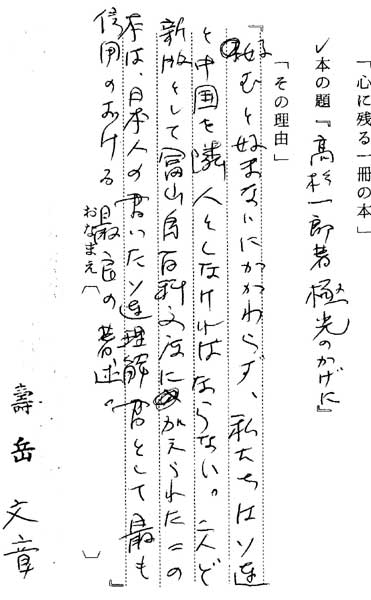 「心に残る一冊の本」
✓本の題『高杉一郎著 極光のかげに』
「その理由」
『好むと好まないにかかわらず、私たちはソ連
と中国を隣人としなければならない。こんど
新版として冨山房百科文庫に加えられたこの
本は、日本人の書いたソ連理解書として最も
信用のおける最良の著述。』
おなまえ〔壽岳 文章〕